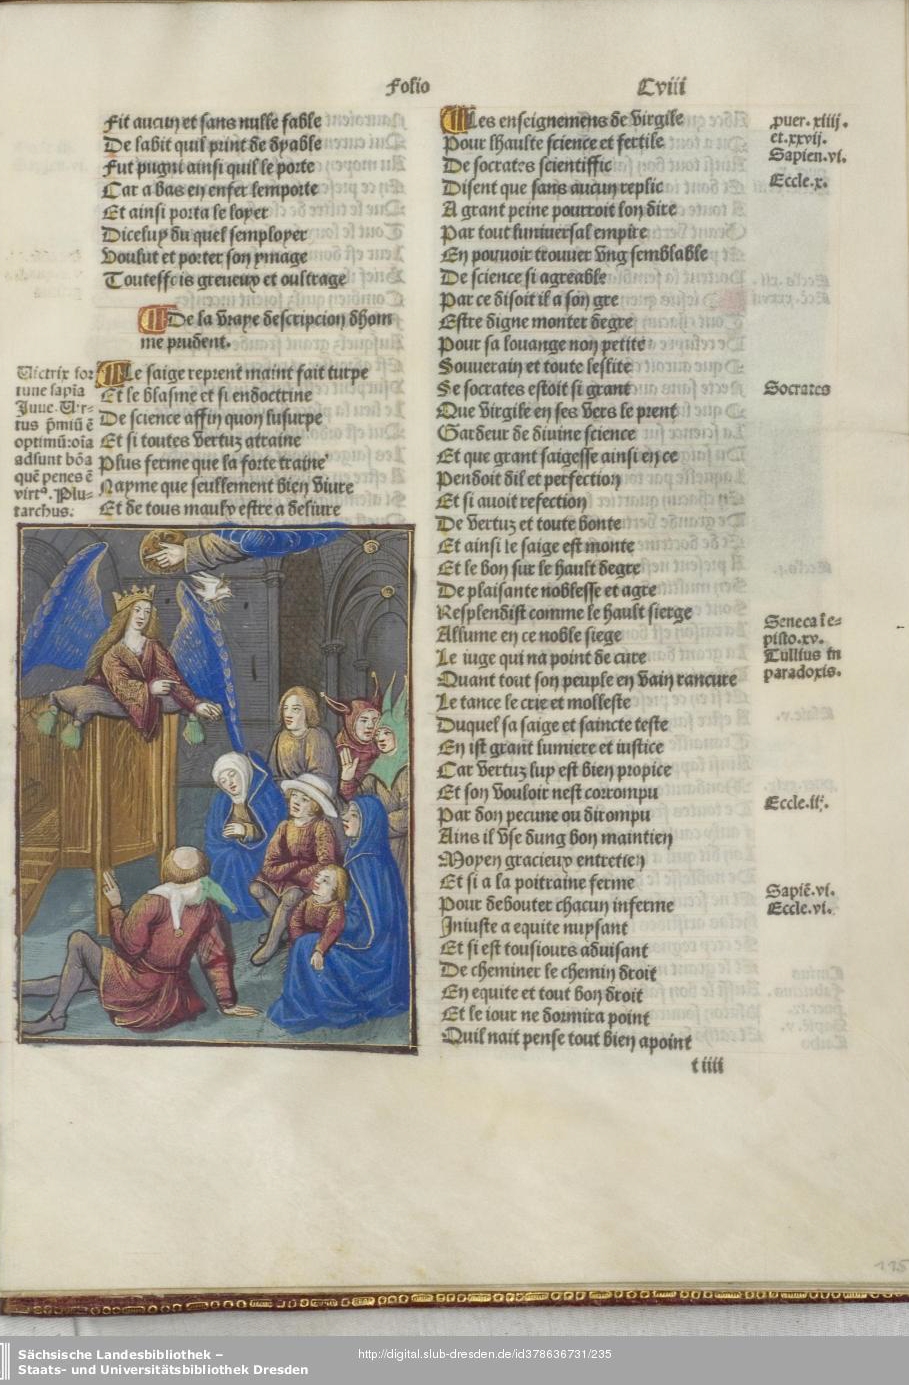 Folio Cviii
Fit aucun et sans nulle fable
De labit quil print de dyable
Fut pugni ainsi quil le porte
Car a bas en enfer lemporte
Et ainsi porta le loyer
Diceluy du quel semployer
Voulut et porter son ymage
Touteffois greueux et oultrage
De la vraye description dhom
me prudent.
Victrix for
tune sapia
Juue. Vir-
tus p̄miū ē
optimū:oia
adsunt bōa
quē penes ē
virtꝰ. Plu-
tarchus.
Le saige reprent maint fait turpe
Et le blasme et si endoctrine
De science affin quon lusurpe
Et si toutes vertuz atraine
Plus ferme que la forte traine
Nayme que seullement bien viure
Et de tous maulx estre a deliure
Les enseignemens de Virgile
Pour lhaulte science et fertile
De socrates scientiffic
Disent que sans aucun replic
A grant peine pourroit lon dire
Par tout luniuersal empire
En pouuoir trouuer vng semblable
De science si agreable
Par ce disoit il a son gre
Estre digne monter degre
Pour sa louange non petite
Souuerain et toute leslite
Se socrates estoit si grant
Que Virgile en ses vers le prent
Gardeur de diuine science
Et que grant saigesse ainsi en ce
Pendoit dil et perfection
Et si auoit refection
De vertuz et toute bonte
Et ainsi le saige est monte
Et le bon sur le hault degre
De plaisante noblesse et agre
Resplendist comme le hault sierge
Assume en ce noble siege
Le iuge qui na point de cure
Quant tout son peuple en vain rancure
Le tance le crie et molleste
Duquel sa saige et saincte teste
En ist grant lumiere et iustice
Car vertuz luy est bien propice
Et son vouloir nest corrompu
Par don pecune ou dirompu
Ains il vse dung bon maintien
Moyen gracieux entretien
Et si a la poitraine ferme
Pour debouter chacun inferme
Iniuste a equite nuysant
Et si est tousiours aduisant
De cheminer le chemin droit
En equite et tout bon droit
Et le iour ne dormira point
Quil nait pense tout bien apoint
t iiii
puer. xiiij.
et.xxvij.
Sapien.vi.
Eccle.x.
Socrates
Seneca i e-
pisto.xv.
Tullius in
paradoxis.
Eccle.ii.
Sapiē.vi.
Eccle.vi.
Sächsische Landesbibliothek –
Staats- und Universitätsbibliothek Dresden
http://digital.slub-dresden.de/id378636731/235